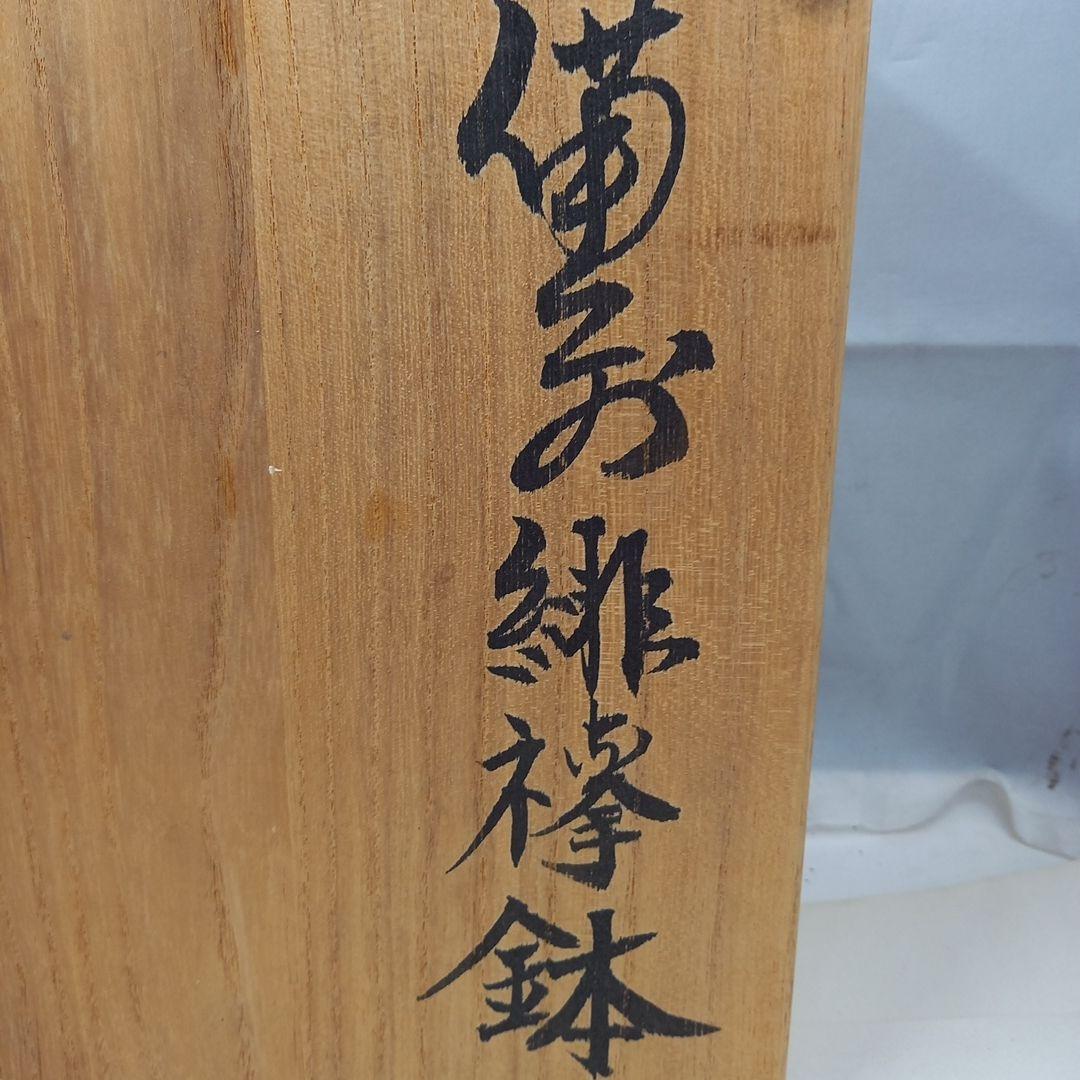 備前緋襷鉢